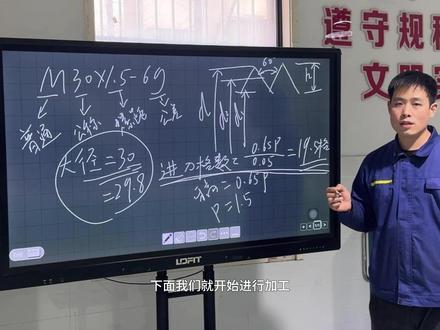 遵守规程
文明实
M30×1.5-6g
普通 公称 螺距 公差
60°
h
d d₂ d₁
大径=30
=29.8
进刀格数: 0.65P/0.05=19.5格
=0.65P
P=1.5
LDFIT
下面我们就开始进行加工